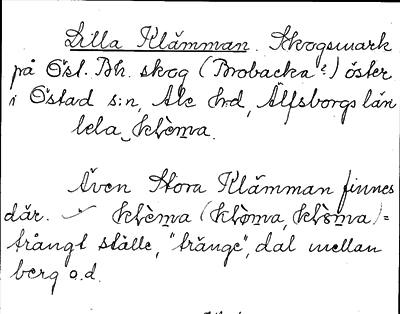 Lilla Klämman. Skogsmark
på Öst. Bh. skog (Brobacka?) öster
i Östad s:n, Ale h:d, Älfsborgs län
lela klèma.
Även Stora Klämman finnes
där. klèma (klòma, klòma) =
trångt ställe, "trånge", dal mellan
berg o.d.